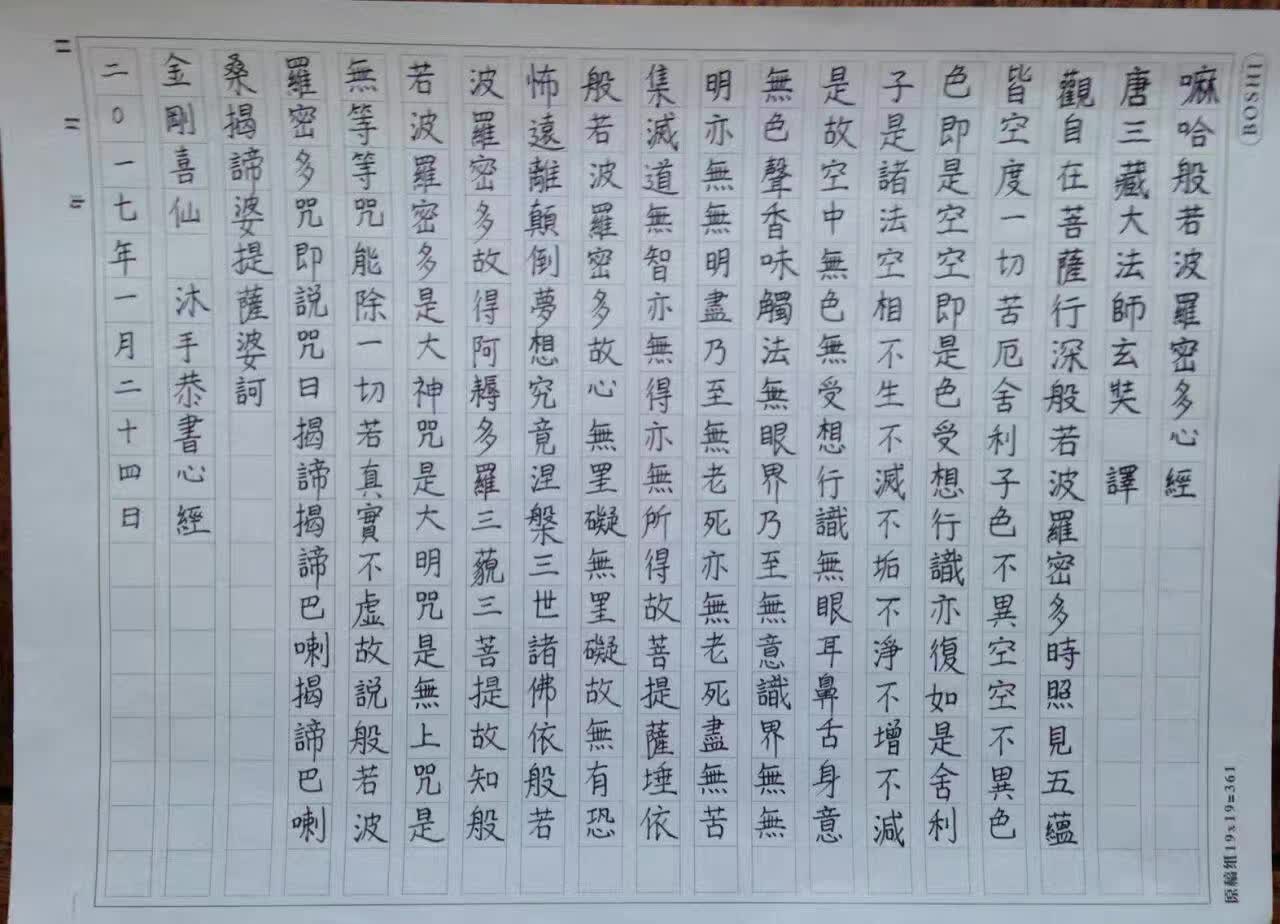 嘛哈般若波羅密多心經
唐三藏大法師玄奘 譯
觀自在菩薩行深般若波羅密多時照見五蘊
皆空度一切苦厄舍利子色不異空空不異色
色即是空空即是色受想行識亦復如是舍利
子是諸法空相不生不滅不垢不淨不增不減
是故空中無色無受想行識無眼耳鼻舌身意
無色聲香味觸法無眼界乃至無意識界無無
明亦無無明盡乃至無老死亦無老死盡無苦
集滅道無智亦無得亦無所得故菩提薩埵依
般若波羅密多故心無罣礙無罣礙故無有恐
怖遠離顛倒夢想究竟涅槃三世諸佛依般若
波羅密多故得阿耨多羅三藐三菩提故知般
若波羅密多是大神咒是大明咒是無上咒是
無等等咒能除一切若真實不虛故説般若波
羅密多咒即説咒日揭諦揭諦巴喇揭諦巴喇
桑揭諦婆提薩婆訶
金剛喜仙 沐手恭書心經
二〇一七年一月二十四日
BOSHI
原稿紙19x19=361